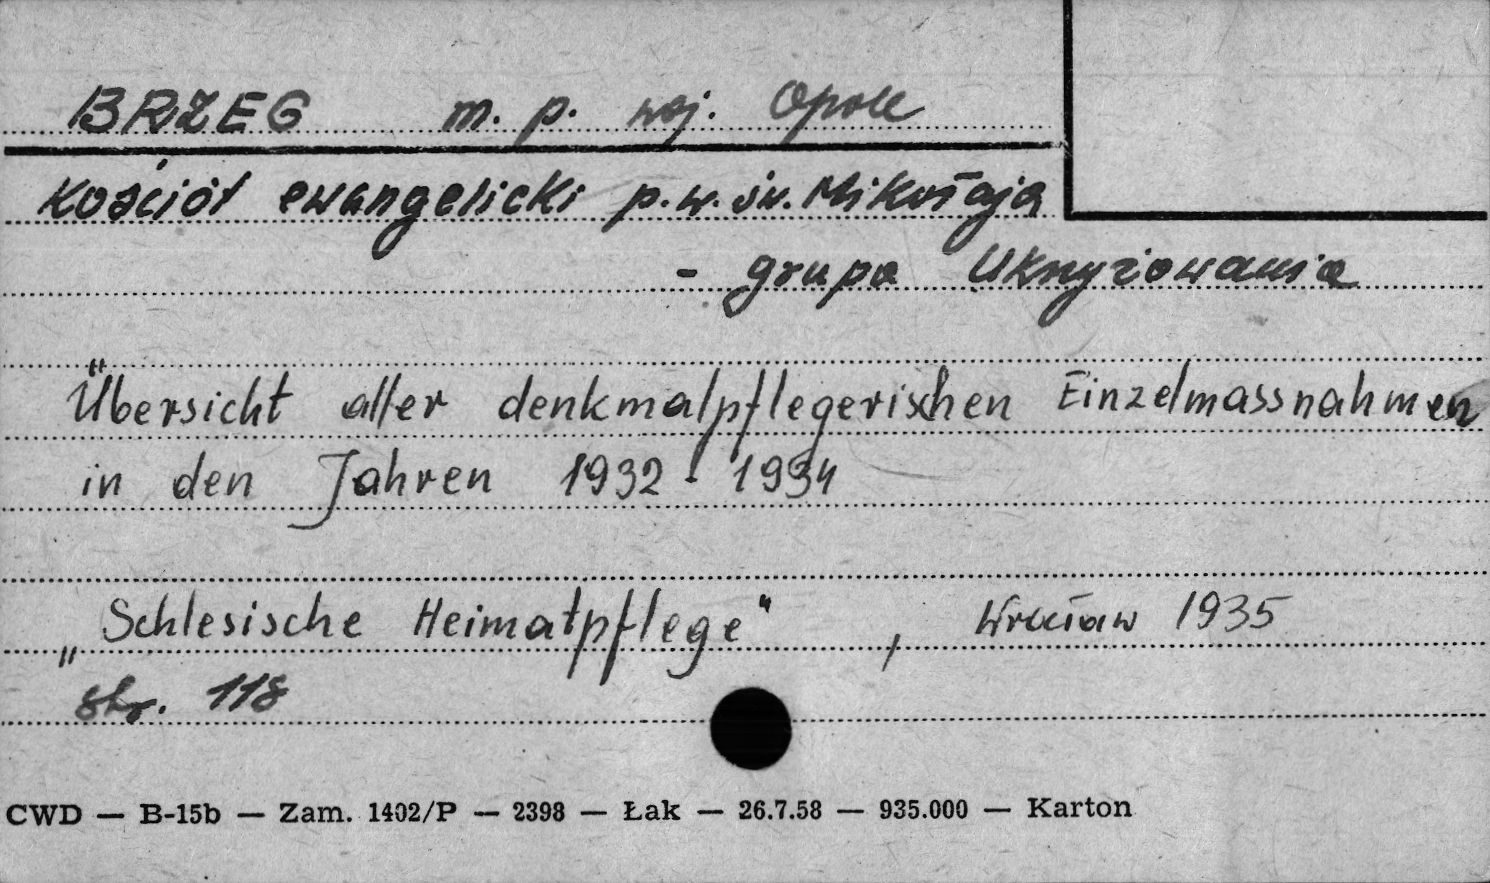 BRZEG m. p. woj. Opole
Kościół ewangelicki p.w. św. Mikołaja
- grupa Ukrzyżowania
Übersicht aller denkmalpflegerischen Einzelmassnahmen
in den Jahren 1932 - 1934
„Schlesische Heimatpflege“, Wrocław 1935
str. 118
CWD — B-15b — Zam. 1402/P — 2398 — Łak — 26.7.58 — 935.000 — Karton